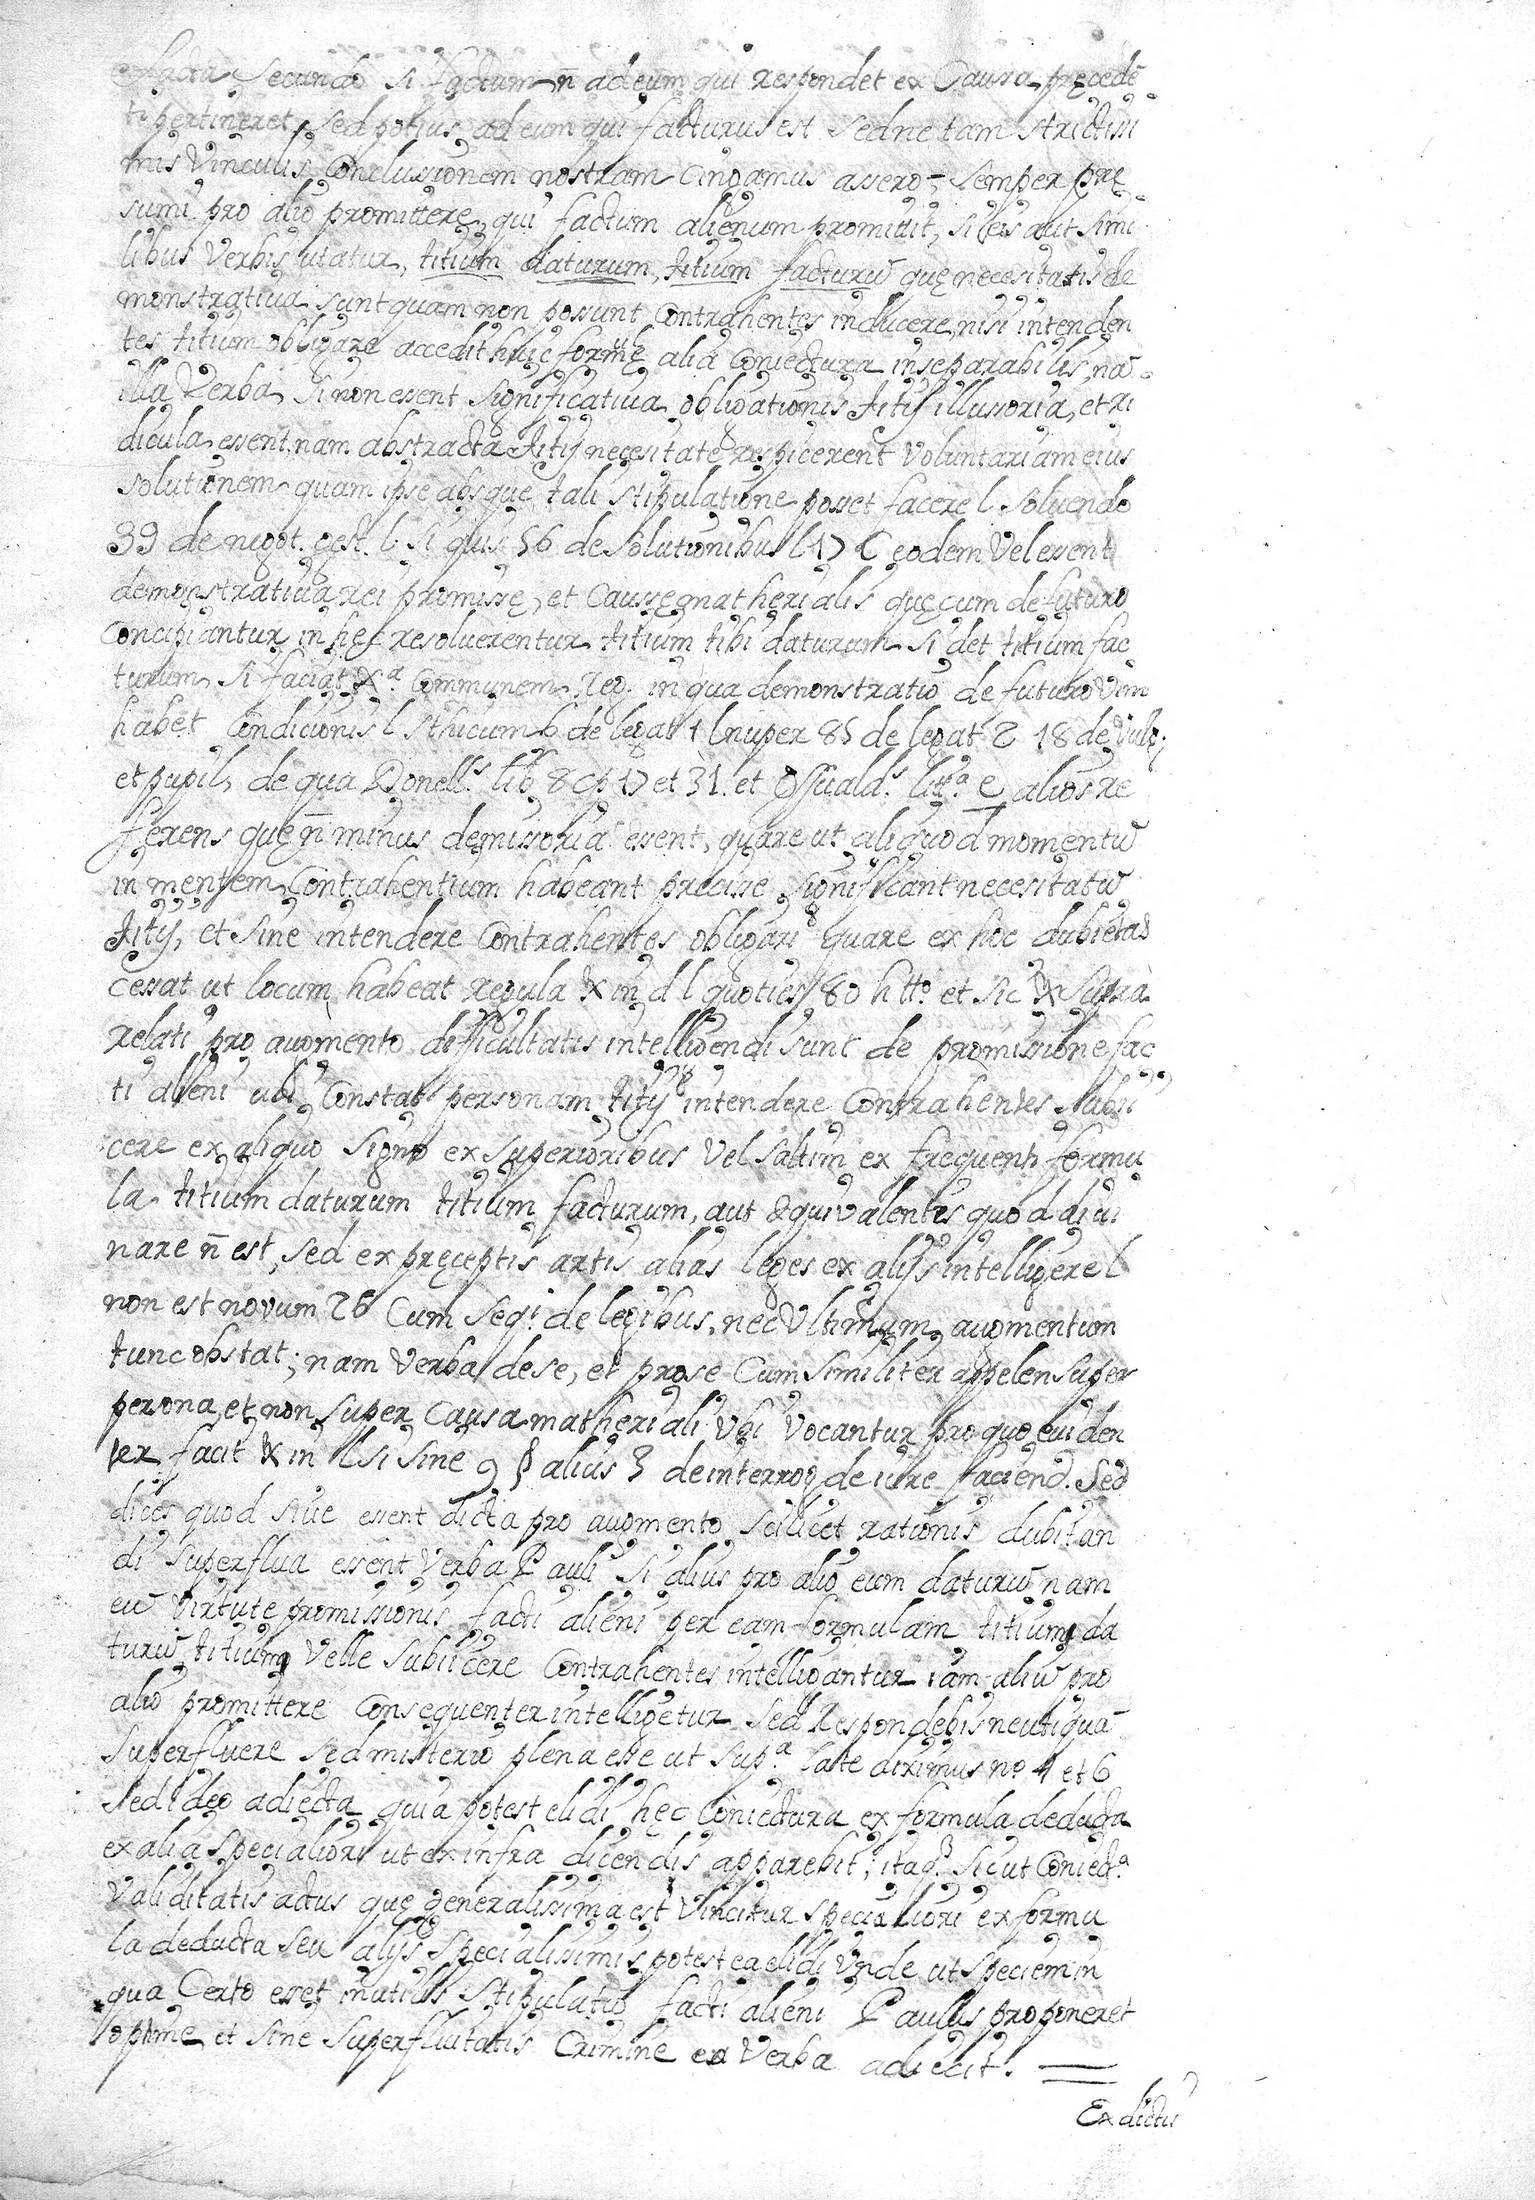 facta secundo si factum, n̄ ad eum qui respondet ex Causa, pręcedē
ti pertineret, sed potius ad eum qui facturus est sed ne tam strictissi
mis Vinculis, Conclussionem nostram Cingamus assero, semper prę
sumi pro alio promittere, qui factum alienum promittit, si eis aut simi
libus Verbis utatur, titium daturum, titium facturū quę necesitatis de
monstratiua, sunt quam non possunt Contrahentes inducere, nisi intenden
tes titium obligare accedit huic formę alia Coniectura inseparabilis, nā
illa Verba, si non essent significatiua, obligationis titij illussoria, et ri
dicula, essent, nam abstracta titij necesitate respicerent Voluntariam eius
solutionem quam ipse absque, tali stipulatione posset facere l. soluendo
39 de negot. gest. l. si quis 56 de solutionibus l 17 C eodem Vel essent
demonstratiua rei promissę, et Caussę matherialis quęcum de futuro
Concipiantur, in hęc resoluerentur titium tibi daturum si det titium fac
turum, si faciat xᵃ. Communem, Reg. in qua demonstratio de futuro Vim
habet Condicionis l sthicum 6 de legat 1 l nuper 85 de legat 2 18 de Vulg.
et pupil, de qua Donell.ˢ lib 8 cp 17 et 31. et Osuald.ˢ litᵃ. e alios re
ferens quę n̄ minus demissoria essent, quare ut aliquod momentū
in mentem, Contrahentium habeant precisse significant necesitatē
titij, et sine intendere Contrahentes obligari quare ex hoc dubietas
cessat ut locum habeat regula x in d l quoties 80 h tt.º et sic x supra
relati pro augmento difficultatis intelligendi sunt de promissione fac
ti alieni ubi Constat personam titij intendere Contrahentes subii
cere ex aliquo signo ex superioribus Vel saltim ex frequenti formu
la titium daturum titium facturum, aut equivalentis quod diui
nare n̄ est, sed ex pręceptis artis alias leges ex alijs intelligere l
non est novum 26 Cum seqⁱ. de legibus, nec Ultimum, augmention
tunc obstat; nam Verba de se, et pro se Cum similiter appelen super
persona, et non super Causa matheriali, Ubi Vocantur, pro quo euiden
ter facit x in l si sine 9 § alius 3 de interrog de iure faciend. Sed
dices quod siue essent dicta pro augmento scilicet rationis dubitan
di superflua essent Verba Pauli si alius pro alio eum daturū nam
cū Virtute promissionis facti alieni per eam formulam titium da
turū, titium Velle subiicere Contrahentes intelligantur iam aliū pro
alio promittere Consequenter intelligetur sed Respondebis neutiquā
superfluere sed misterio plena esse ut supᵃ. late diximus nº 4 et 6
sed ideo adiecta, quia potest elidi hęc Coniectura ex formula deducta
ex alia specialiori ut ex infra dicendis apparebit; itaq. sicut Coniectᵃ
Validitatis actus quę generalissima est Vincitur speciuliori ex formu
la deducta seu alijs specialissimis potest ea elidi Unde ut speciem in
qua Certo esset inutilis stipulatio facti alieni Paulus proponeret
optime et sine superfluitatis Crimine ea Verba adiecit.
Ex dictis